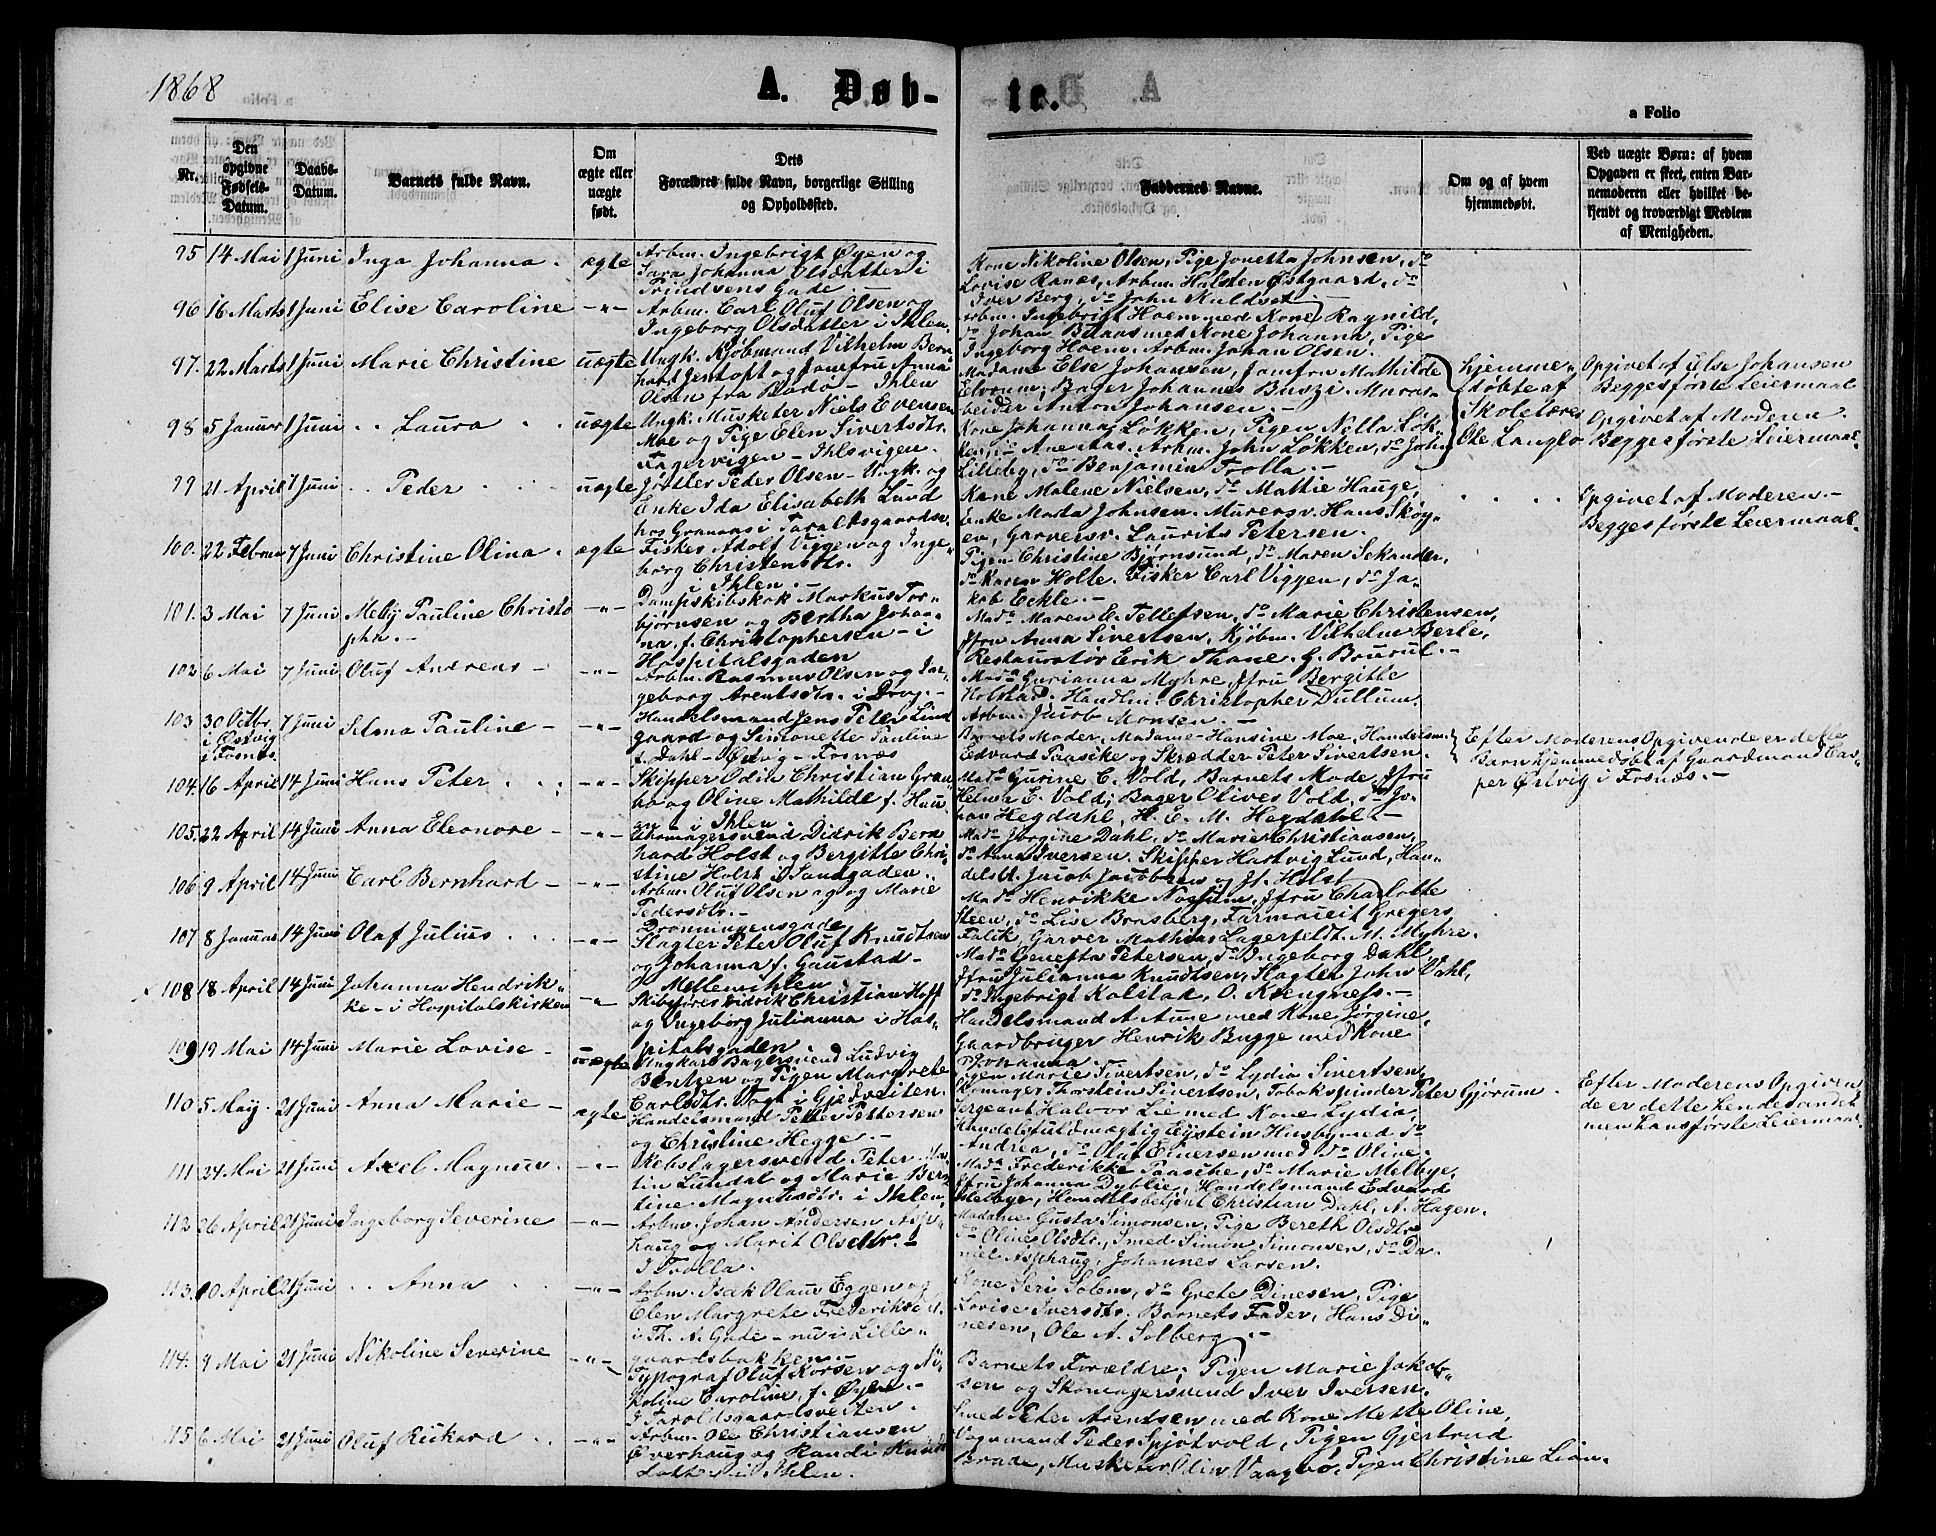 1868
A. Døb-
te.
a Folio
Nr.
Den opgivne Fødsels-Datum.
Daabs-Datum.
Barnets fulde Navn.
Om ægte eller uægte født.
Dets Forældres fulde Navn, borgerlige Stilling og Opholdssted.
Faddernes Navne.
Om og af hvem hjemmedøbt.
Ved uægte Børn: af hvem Opgaven er skeet, enten Barnemoderen eller hvilket bekjendt og troværdigt Medlem af Menigheden.
95 14 Mai 1 Juni Inga Johanna. ægte
Arbm. Ingebrigt Øyen og
Sara Johanna Olsdatter i
Prindsens Gade.
Kone Nikoline Olsen, Pige Jonetta Johnsen, do
Lovise Ranas, Arbm. Halsten Østgaard, do
Iver Berg, do John Kuldset
96 16 Marts 1 Juni Elise Caroline -"-
Arbm. Carl Oluf Olsen og
Ingeborg Olsdatter i Ihlen.
Arbm. Ingebrigt Hoem med Kone Ragnild,
do Johan Braas med Kone Johanna, Pige
Ingeborg Hoem. Arbm. Johan Olsen.
97. 22 Marts 1 Juni Marie Christine uægte
Ungk. Kjøbmand Vilhelm Bern
hard Jentoft og Jomfru Anna
Olsen fra Bodø - Ihlen
Madame Else Johansen, Jomfru Mathilde
Elvrum; Bager Johannes Buszi. Murar-
beider Anton Johansen.
hjemme-
døbte af
Skolelærer
Ole Langlo
Opgivet af Else Johansen
Begges første Leiermaal
98 5 Januar 1 Juni Laura uægte
Ungk. Musketer Niels Evensen
Moe og Pige Elen Sivertsdtr.
Fagervigen - Ihlsvigen.
Kone Johanna Løkken, Pigen Nella Løk-
ken, do Ane Aas. Arbm. John Løkken, do John
Lilleby, do Benjamin Trolla.
Opgivet af Moderen.
Begges første Leiermaal
99 21 April 7 Juni Peder uægte
Jøtter Peder Olsen - Ungk. og
Enke Ida Elisabeth Lund
hos Granas i Taraldsgaardsv.
Kone Malene Nielsen, do Mattie Hauge,
Enke Mada Johnsen. Murersv. Hans Skøy-
en, Garversv. Laurits Petersen.
Opgivet af Moderen.
Begges første Leiermaal.
100. 22 Februa 7 Juni Christine Olina. ægte
Fisker Adolf Viggen og Inge-
borg Christensdtr.
i Ihlen.
Pigen Christine Bjørnsund, do Maren Sekander,
do Karen Holte. Fisker Carl Viggen, do Ja-
kob Eckle.
101. 3 Mai 7 Juni Meby Pauline Christo
pha. -"-
Dampskibskok Markus Tor-
bjørnsen og Bertha Johan-
na, f. Christophersen - i
Hospitalsgaden
Mada Maren E. Tellefsen, do Marie Christensen,
Jfru Anna Sivertsen, Kjøbm. Vilhelm Berle,
Restauratør Erik Thane. G. Brurul.
102 6 Mai 7 Juni Oluf Andreas -"-
Arbm. Rasmus Olsen og In-
geborg Arentsdtr. i Drog.
Mada Gurianna Myhre, Jfru Bergitte
Holstad. Handlm. Christopher Dullum.
Arbm. Jacob Monsen.
103 30 Octbr.
i Østvig
i Fosnes 7 Juni Selma Pauline -"-
Handelsmand Jens Peter Lund
gaard og Simonette Pauline
f. Dahl - Østvig - Fosnæs
Barnets Moder, Madame Hansine Moe, Handelsm.
Edvard Paasike og Skrædder Peter Sivertsen.
Efter Moderens Opgivende er dette
Barn hjemmedøbt af Gaardmand Cas-
per Østvig i Fosnæs.
104. 16 April 14 Juni Hans Peter -"-
Skipper Odin Christian Gran
bo og Oline Mathilde f. Han
sen - i Ihlen
Mada Gurine C. Vold, Barnets Mode, Jfru
Helma E. Vold; Bager Olives Vold, do Jo-
han Hegdahl, H. E. M. Hegdahl
105. 22 April 14 Juni Anna Eleonore -"-
Skomagersvend Didrik Bern
hard Holst og Bergitte Chri-
stine Holst i Sandgaden.
Mada Jørgine Dahl, do Marie Christiansen,
do Anna Iversen. Skipper Hartvig Lund, Han-
delsbt. Jacob Jacobsen og H. Holst
106 9 April 14 Juni Carl Bernhard -"-
Arbm. Oluf Olsen og og Marie
Pedersdtr.
Dronningensgade
Mada Henrikke Nossum, Jfru Charlotte
Steen, do Lise Brasberg, Farmaceit Gregers
Falik, Garver Mathias Lagerfeldt. M. Myhre.
107 8 Januar 14 Juni Olaf Julius -"-
Slagter Peter Oluf Knudtsen
og Johanna f. Gaustad
Mellemihlen
Mada Genefta Petersen, do Ingeborg Dahl
Jfru Julianna Knudtsen, Slagter John Dahl,
do Ingebrigt Kolstad, O. Krengness.
108 18 April 14 Juni Johanna Hendrik-
ke - i Hospitalskirken -"-
Skibsfører Didrik Christian Hoff
og Ingeborg Julianna i Hos-
pitalsgaden
Handelsmand A Aune med Kone Jørgine
Gaardbruger Henrik Bugge med Kone
Johanna
109 19 Mai 14 Juni Marie Lovise uægte
Ungkarl Bagersvend Ludvig
Bentzen og Pigen Margrete
Carlsdtr. Vogt i Gjedveiten.
Pigen Marie Sivertsen, do Lydia Sivertsen,
Skomager Thorstein Sivertsen, Tobakspinder Peter Gjørum.
Efter Moderens Opgiven
de er dette hendes andet
men hans første Leiermaal.
110 5 May. 21 Juni Anna Marie - ægte
Handelsmand Petter Pettersen
og Christine Hegge.
Sergeant Halvor Lie med Kone Lydia
Handelsfuldmægtig Eystein Husby med do
Andrea, do Oluf Einersen med do Oline.
111 24 Mai 21 Juni Axel Magnus. -"-
Rebslagersvend Peter Mar
tin Lundal og Marie Bern
tine Magnusdtr. i Ihlen.
Mada Frederikke Paasche, do Marie Melbye,
Jfru Johanna Dyblie, Handelsmand Edvard
Melbye, Handelsbetjent Christian Dahl, A. Hagen.
112 26 April 21 Juni Ingeborg Severine -"-
Arbm. Johan Andersen Asp-
haug og Marit Olsdtr.
I Trolla.
Madame Gusta Simonsen, Pige Bereth Olsdtr
do Oline Olsdtr., Smed Simon Simonsen, do Da-
niel Asphaug, Johannes Larsen.
113. 10 April 21 Juni Anna -"-
Arbm. Isak Olaus Eggen og
Elen Margrete Frederiksdt.
i Th. A. Gade - nu i Lille-
gaardsbakken.
Kone Seri Solem, do Grete Dinesen, Pige
Lovise Iversdtr. Barnets Fader, Hans Di-
nesen, Ole A. Solberg.
114. 9 Mai 21 Juni Nikoline Severine -"-
Typograf Oluf Korsen og Ni-
koline Caroline, f. Øyen.
I Taroldsgaardsveiten.
Barnets Forældre; Pigen Marie Jakob-
sen og Skomagersvend Iver Iversen.
115 6 Mai 21 Juni Oluf Rickard -"-
Arbm. Ole Christiansen
Everhaug og Randi Knuds
datter i Ihlen.
Smed Peter Arentsen med Kone Mette Oline,
Vognmand Peder Spjøtvold, Pigen Gjertrud
Brade, Musketer Odin Vaagbø, Pigen Christine Lian.